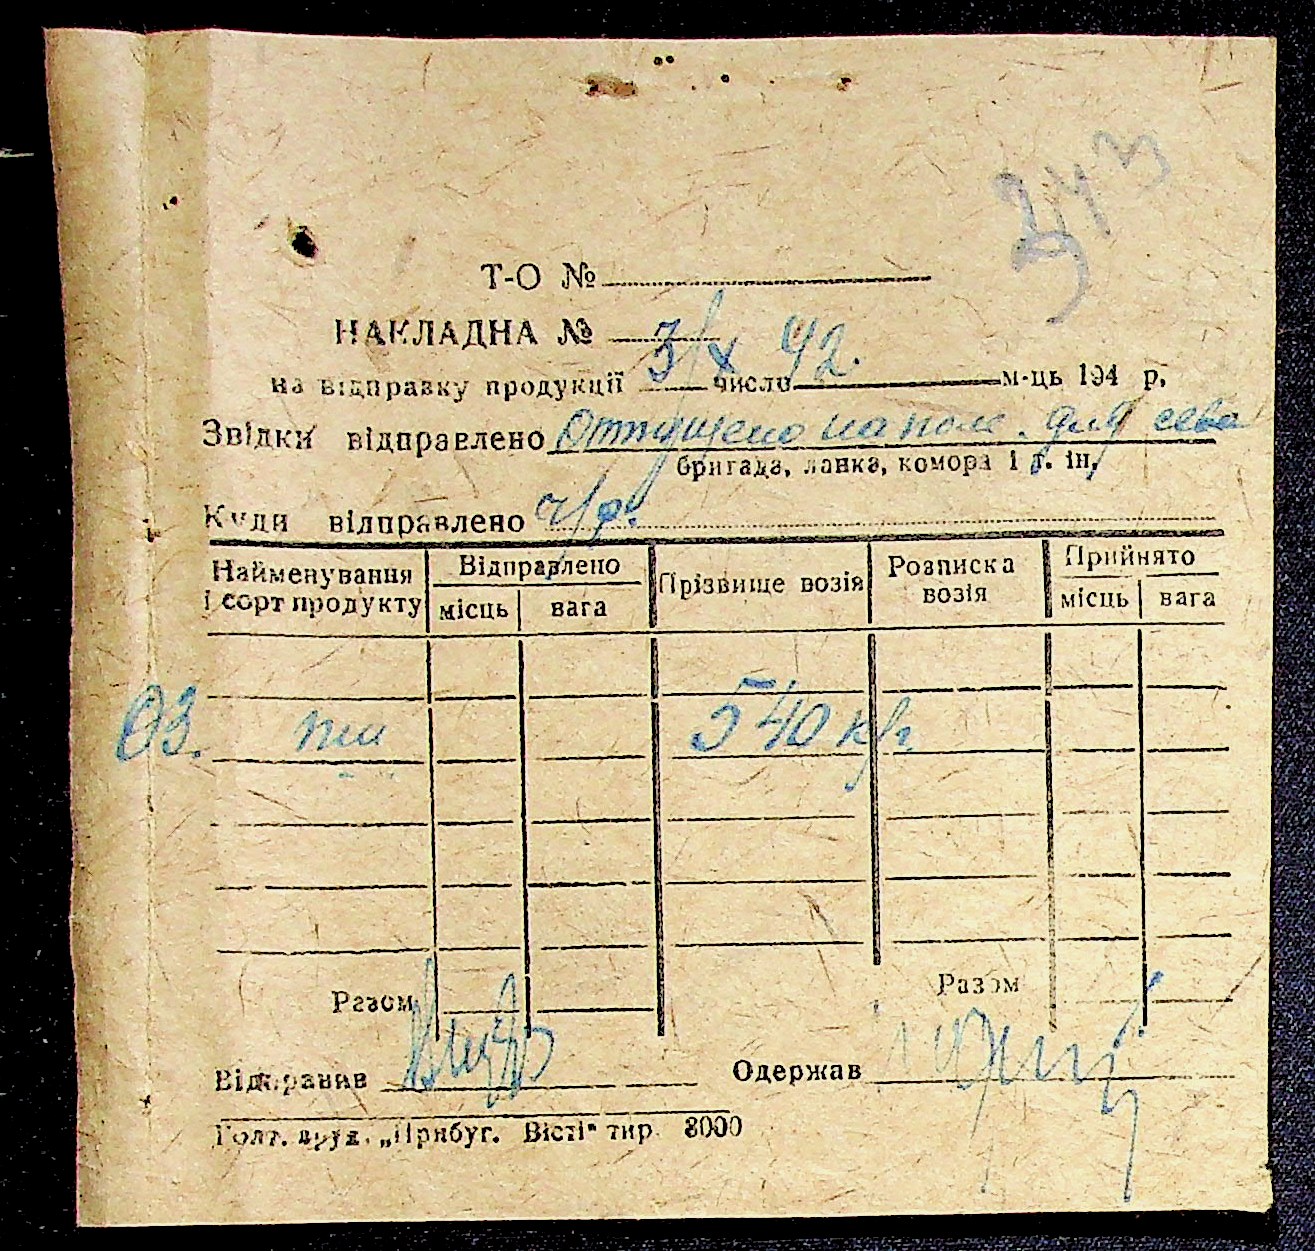 243
Т-О №
НАКЛАДНА №
3/X 42.
на відправку продукції число м-ць 194 р.
Звідки відправлено Отпущено на поле. для сева
бригада, ланка, комора і т. ін.
Куди відправлено
Найменування і сорт продукту
Відправлено
місць вага
Прізвище возія
Розписка возія
Прийнято
місць вага
Оз. 540 кгр
Разом Разом
Відправив Одержав
Голт. друк. „Прибуг. Вісті" тир. 8000